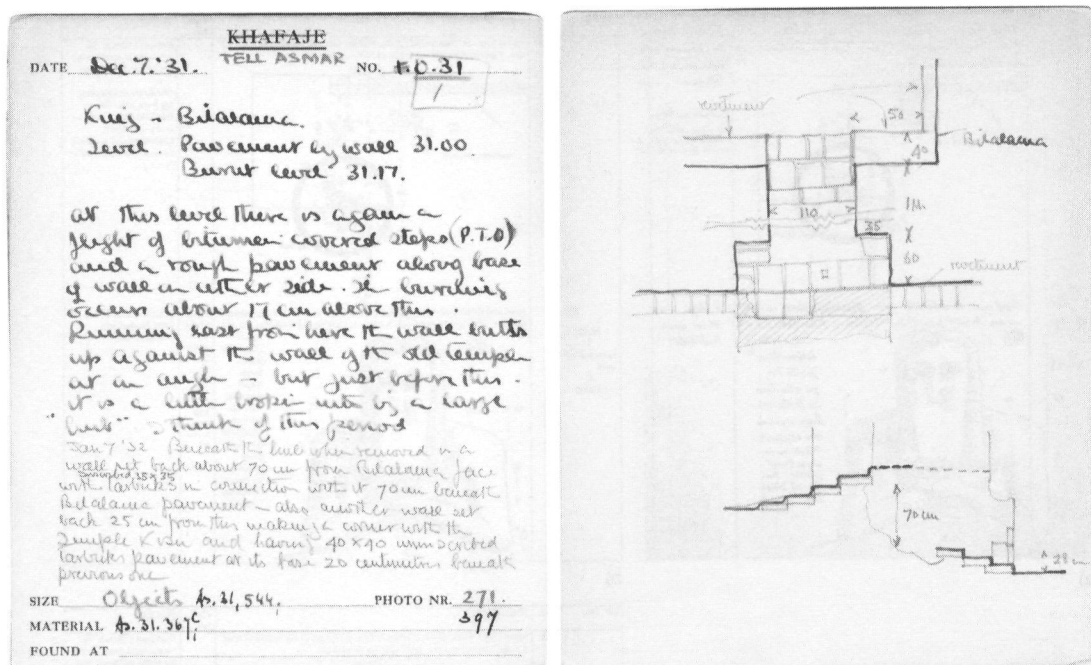 KHAFAJE
TELL ASMAR
DATE Dec. 7. '31. NO. 1.O.31
1
King - Bilalama.
Level. Pavement by wall 31.00.
Burnt level 31.17.
at this level there is again a
flight of bitumen covered steps (P.T.O)
and a rough pavement along base
of wall on either side. The burning
occurs about 17 cm above this.
Running east from here the wall butts
up against the wall of the old temple
at an angle - but just before this.
it is a little broken into by a large
think of this period
Jan 7 '32 Beneath the when removed is a
wall set back about 70 cm from Bilalama face
35 x 35
with tarbricks in connection with it 70 cm beneath
Bilalama pavement - also another wall set
back 25 cm from this making a corner with the
Temple and having 40 x 40 uninscribed
tarbricks pavement at its base 20 centimetres beneath
previous one
SIZE Objects As. 31, 544. PHOTO NR. 271.
MATERIAL As. 31. 367c 397
FOUND AT
revetment
50
Bilalama
40
110
1 M.
35
60
revetment
70 cm
28 cm